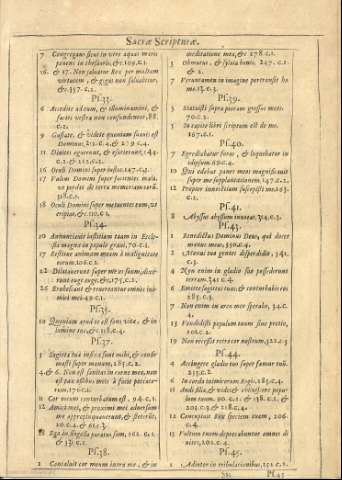 Sacræ Scripturæ.
7 Congregans sicut in utre aquas maris
ponens in thesauris, &c. 109. c. 1.
16. & 17. Non salvatur Rex per multam
virtutem, & gigas non salvabitur,
&c. 357. c. 2.
Ps. 33.
6 Accedite ad eum, & illuminamini, &
facies vestræ non confundentur. 88.
c. 2.
9 Gustate, & videte quoniam suavis est
Dominus, 212. c. 4. & 279. c. 4.
11 Divites eguerunt, & esurierunt, 144.
c. 1. & 212. c. 2.
16 Oculi Domini super iustos. 147. c. 2.
17 Vultus Domini super facientes mala,
ut perdat de terra memoriam eorū.
18 Oculi Domini super metuentes eum, ut
eripiat, &c. 110. c. 1.
Ps. 34.
20 Annuntiavi iustitiam tuam in Ecclesia
magna in populo gravi, 70. c. 1.
17 Restitue animam meam à malignitate
eorum. 106. c. 1.
21 Dilataverunt super me os suum, dixerunt
euge euge, &c. 175. c. 1.
26 Erubescant & revereantur omnes inimici
mei. 49. c. 1.
Ps. 35.
10 Quoniam apud te est fons vitæ, & in
lumine tuo, & c. 118. c. 4.
Ps. 37.
3 Sagittæ tuæ infixæ sunt mihi, & confirmasti
super manum, 285. c. 2.
4. & 6. Non est sanitas in carne mea, non
est pax ossibus meis à facie peccatorum.
176. c. 1.
11 Cor meum conturbatum est. 94. c. 1.
12 Amici mei, & proximi mei adversum
me appropinquaverunt, & steterūt,
20. c. 4. & 61. c. 3.
18 Ego in flagella paratus sum, 162. c. 1.
& 131. c. 1.
Ps. 38.
2 Concaluit cor meum intra me, & in
meditatione mea, &c. 278. c. 1.
5 Obmutui, & silui à bonis, 247. c. 1.
& 2.
7 Veruntamen in imagine pertransit homo.
13. c. 3.
Ps. 39.
3 Statuisti supra petram gressus meos.
70. c. 2.
8 In capite libri scriptum est de me.
167. c. 1.
Ps. 40.
7 Egrediebatur foras, & loquebatur in
idipsum. 69. c. 4.
10 Qui edebat panes meos magnificavit
super me supplantationem, 147. c. 2.
12 Propter innocentiam suscepisti me. 163.
c. 2.
Ps. 41.
8 Abyssus abyssum invocat. 314. c. 3.
Ps. 43.
1 Benedictus Dominus Deus, qui docet
manus meas. 350. c. 4.
3 Manus tua gentes disperdidit, 341.
c. 3.
4 Non enim in gladio suo possederunt
terram. 341. c. 4.
6 Emitte sagittas tuas, & conturbabis eos
285. c. 3.
7 Non enim in arcu meo sperabo, 34. c.
4.
13 Vendidisti populum tuum sine pretio,
102. c. 2.
19 Non recessit retro cor nostrum, 321. c. 3
Ps. 44.
4 Accingere gladio tuo super femur tuū.
225. c. 2.
6 In corda inimicorum Regis, 285. c. 4.
11 Audi filia, & vide & obliviscere populum
tuum. 20. c. 1. & 138. c. 1. &
202. c. 3. & 218. c. 4.
12 Concupiscet Rex speciem tuam, 206.
c. 4.
13 Vultum tuum deprecabuntur omnes divites,
202. c. 4.
Ps. 45.
2 Adiutor in tribulationibus, 151. c. 1.
Ps. 47